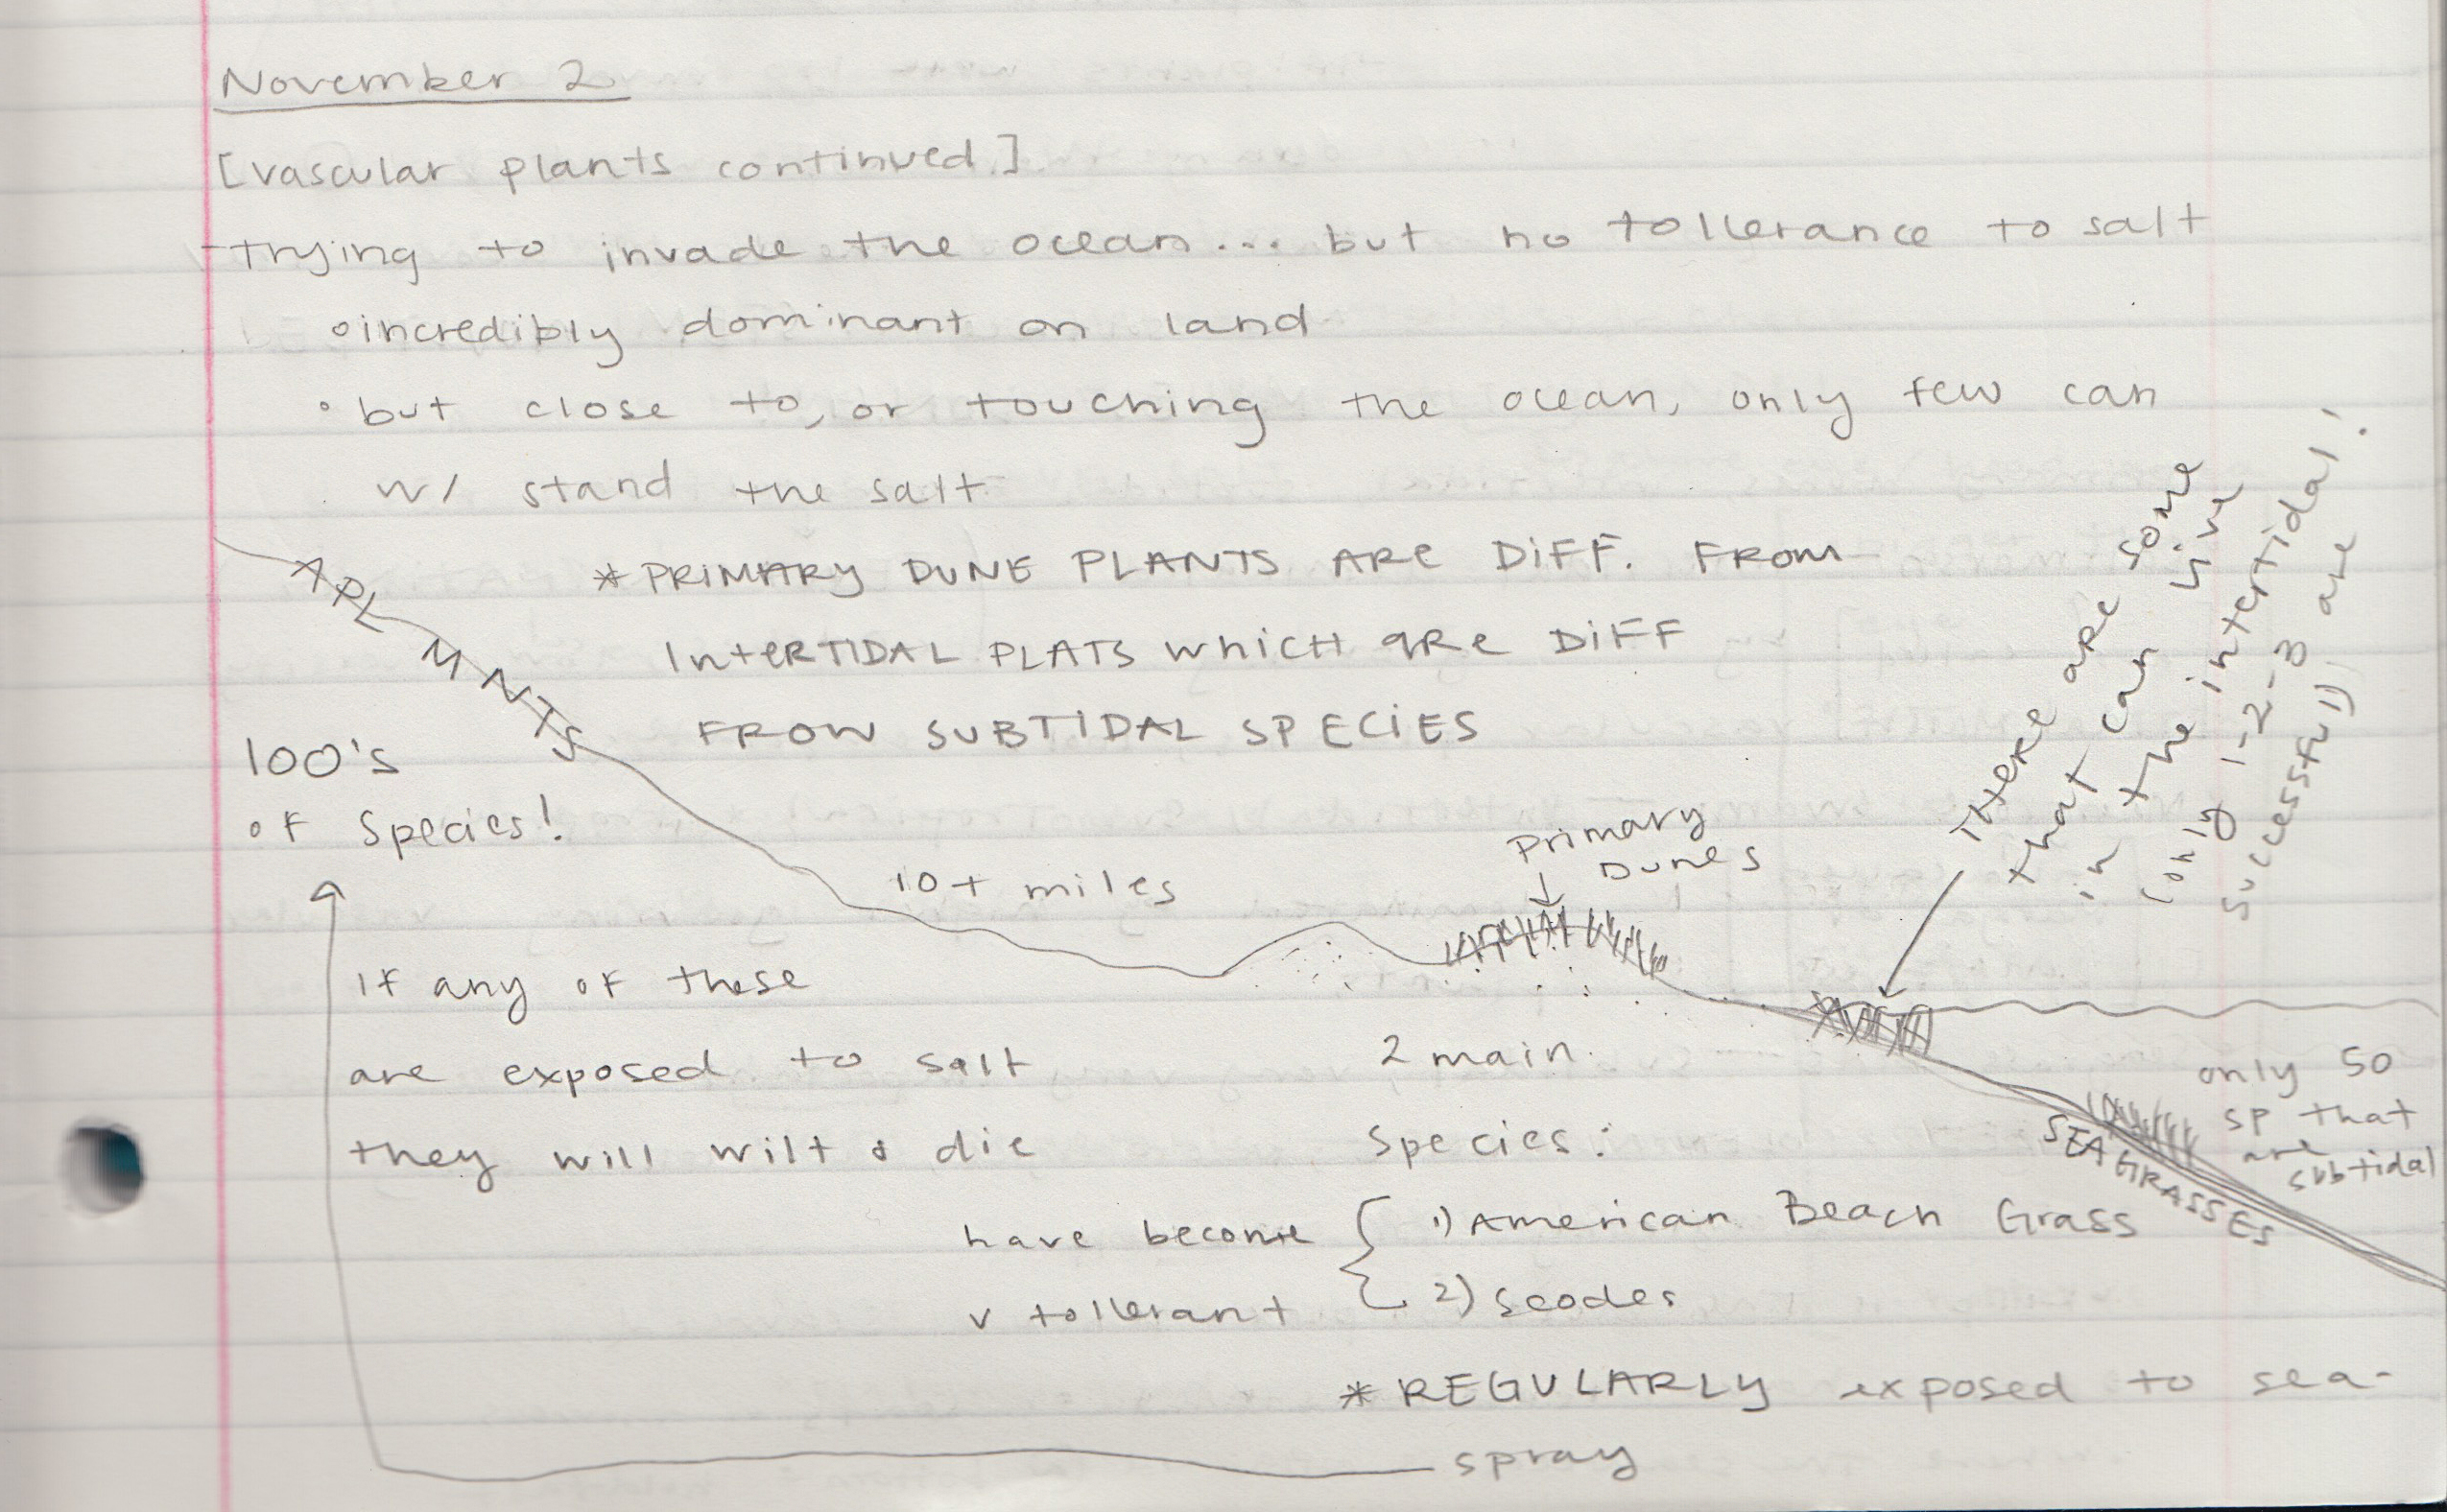 November 2
[vascular plants continued]
trying to invade the ocean... but no tollerance to salt
◦incredibly dominant on land
◦but close to, or touching the ocean, only few can
w/ stand the salt
*PRIMARY DUNE PLANTS ARE DIFF. FROM
INTERTIDAL PLATS WHICH ARE DIFF
FROM SUBTIDAL SPECIES
APL MNTS
100's
of Species!
10+ miles
Primary
Dunes
There are some
that can live
in the intertidal!
(only 1-2-3 are
successful)
If any of these
are exposed to salt
they will wilt & die
2 main
Species:
have become
v tollerant
1) American Beach Grass
2) Seodes
*REGULARLY exposed to sea-
spray
only 50
sp that
are
subtidal
SEAGRASSES